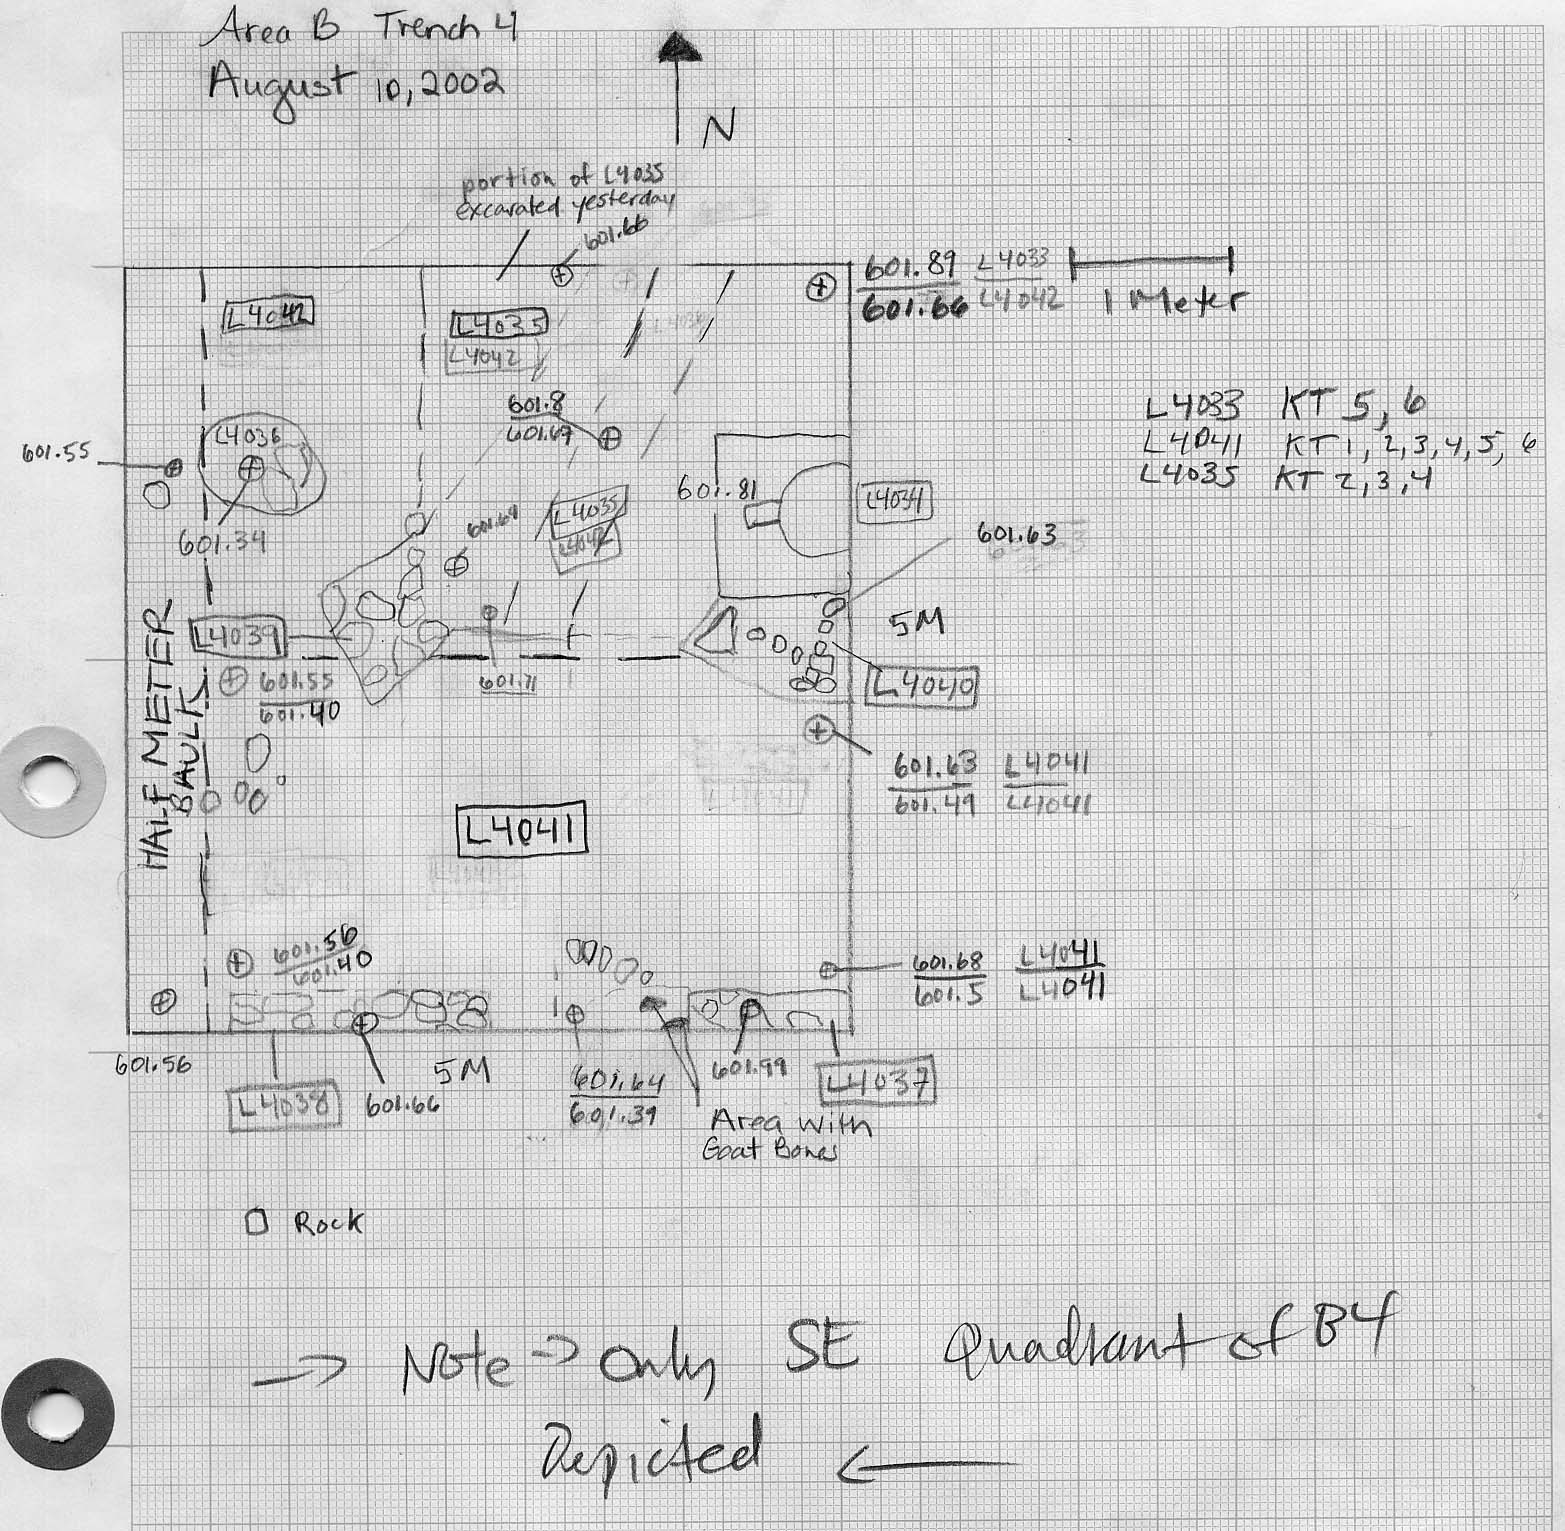 Area B Trench 4
August 10, 2002
N
portion of L4035
excavated yesterday
601.66
601.89 L4033
601.66 L4042
1 Meter
L4042
L4035
L4042
L4033 KT 5, 6
L4041 KT 1, 2, 3, 4, 5, 6
L4035 KT 2, 3, 4
601.8
601.67
601.55
L4036
601.34
601.69
L4035
L4042
601.81
L4034
601.63
HALF METER
BAULK
L4039
601.55
601.40
601.71
5M
L4040
601.63 L4041
601.49 L4041
L4041
601.56
601.40
601.68 L4041
601.5 L4041
601.56
L4038
601.66
5M
601.64
601.39
601.99
L4037
Area with
Goat Bones
Rock
→ Note → Only SE Quadrant of B4
Depicted ←